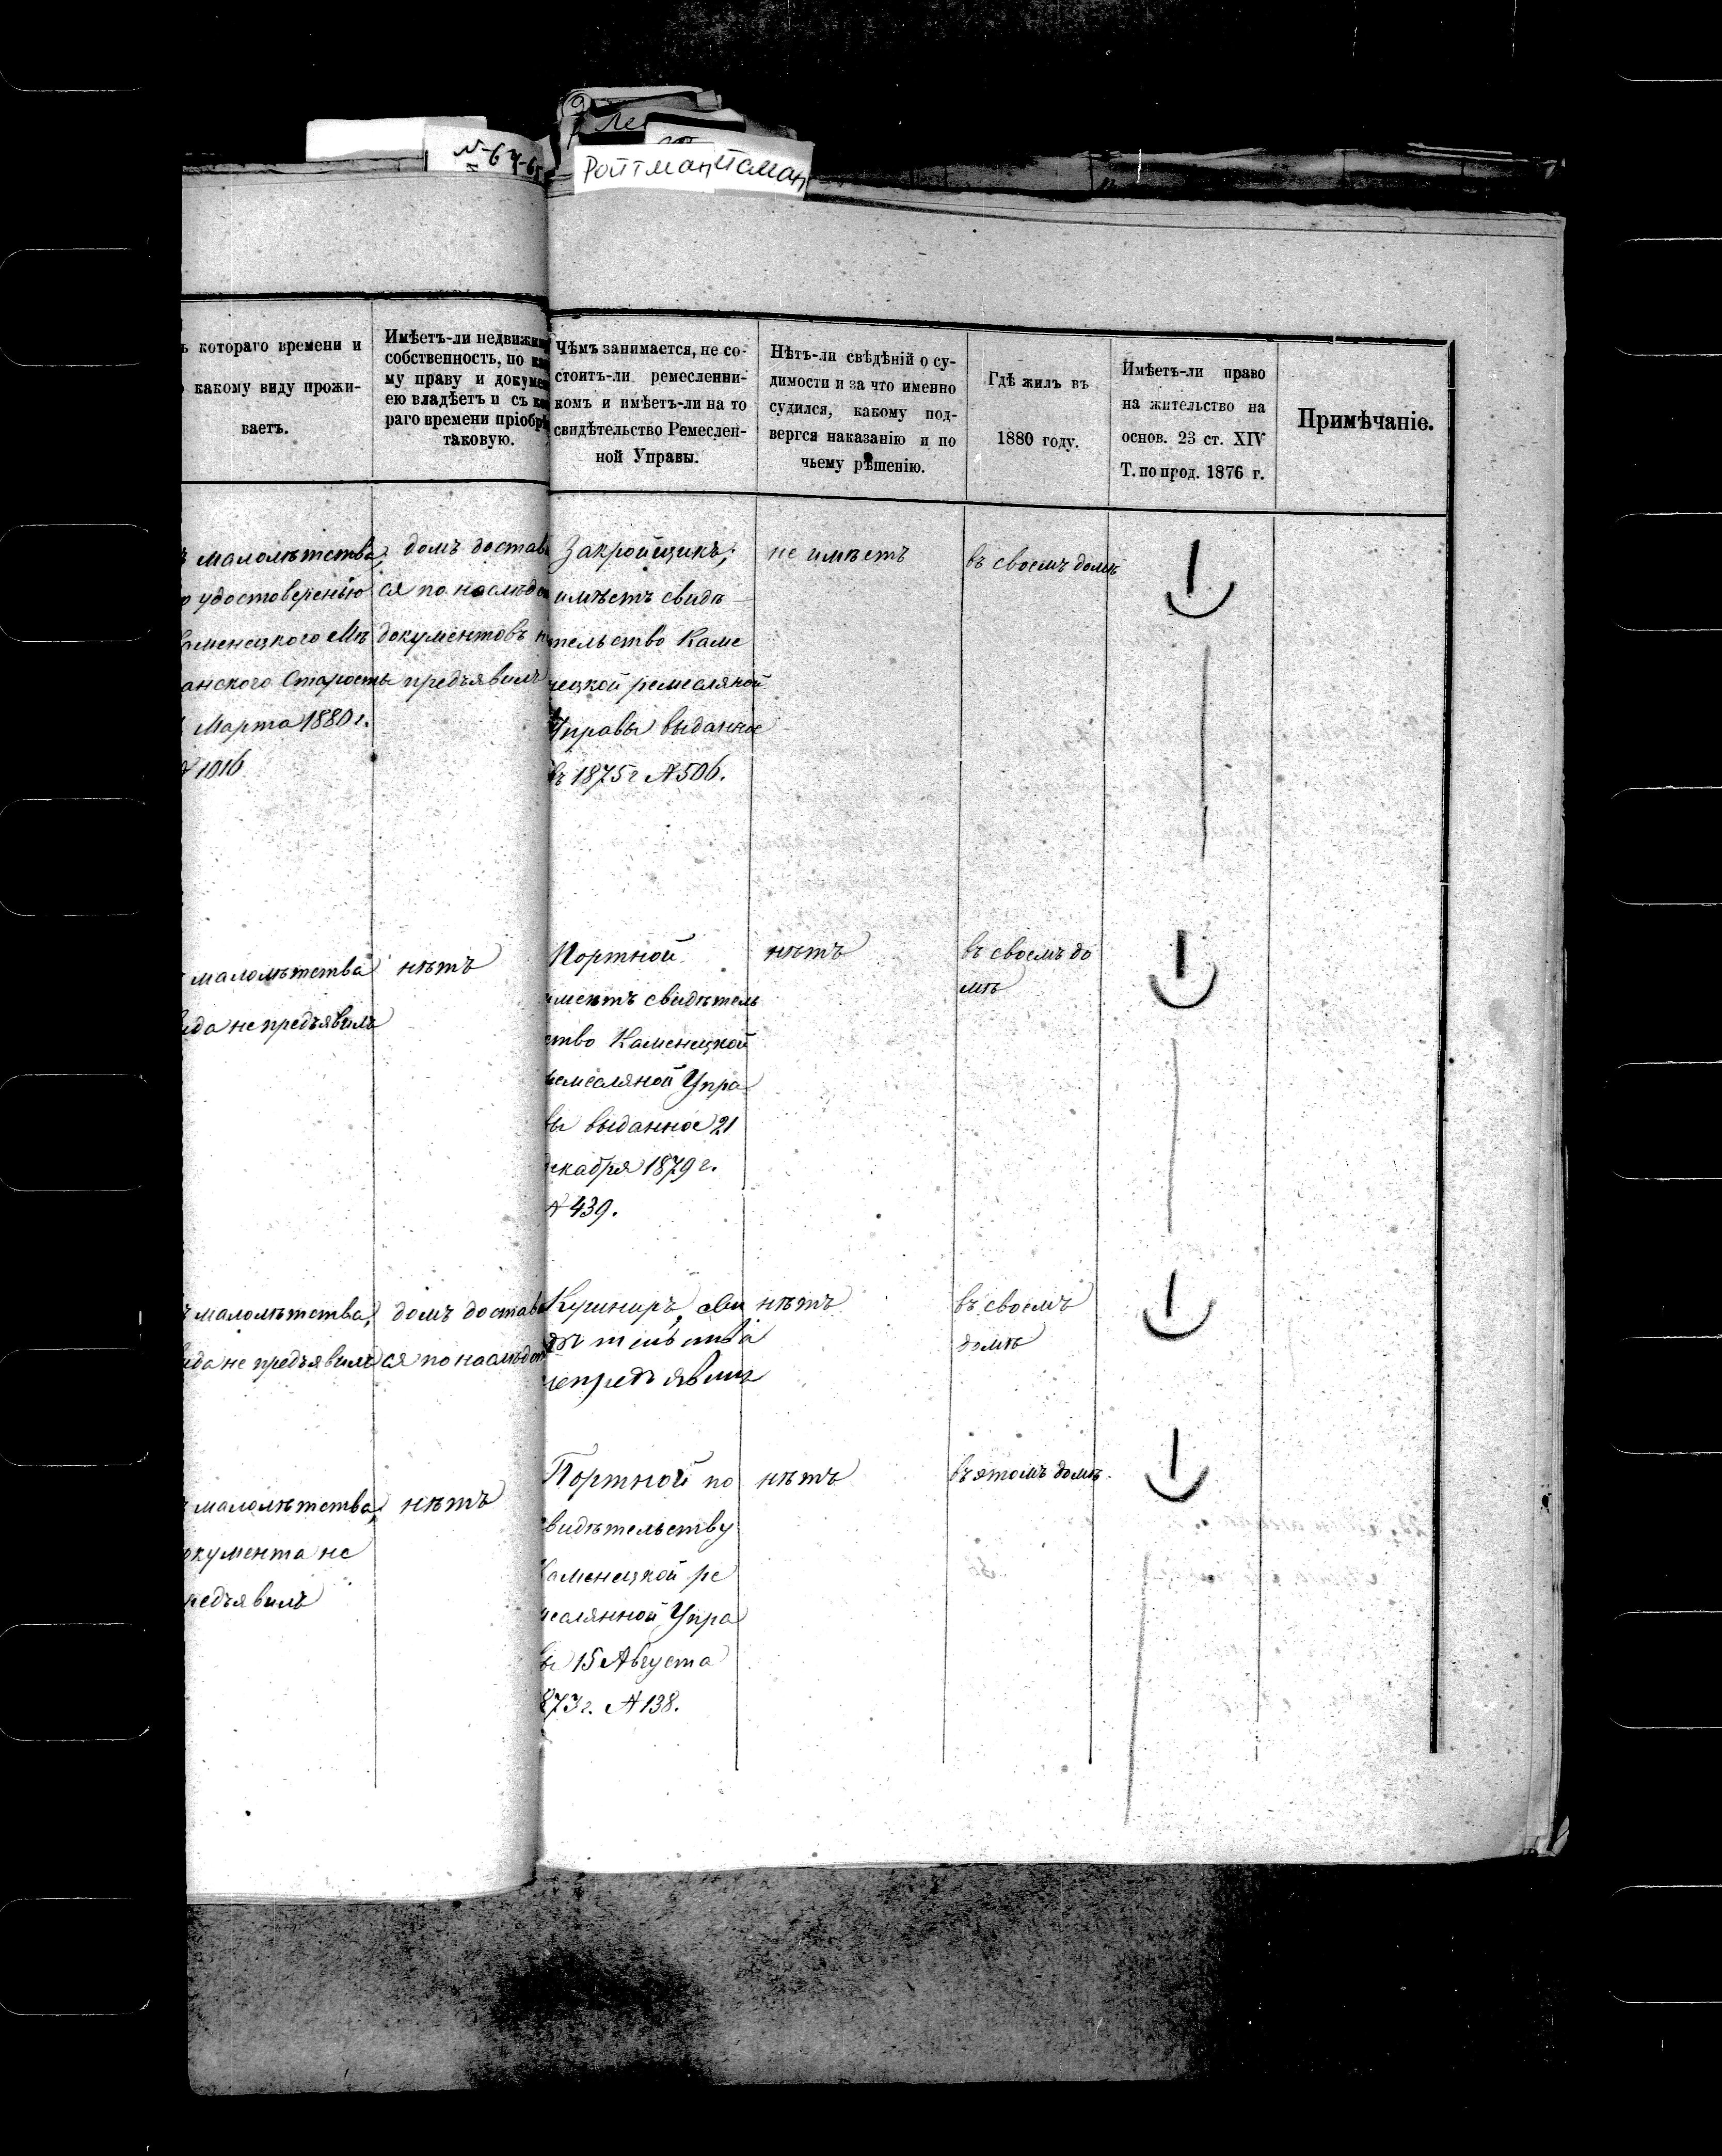 № 64-65
Ройтман
ъ котораго времени и
какому виду прожи-
ваетъ.
Имѣетъ-ли недвижи
собственность, по ка
му праву и докуме
ею владѣетъ и съ ко
раго времени пріобрѣ
таковую.
Чѣмъ занимается, не со-
стоитъ-ли ремесленни-
комъ и имѣетъ-ли на то
свидѣтельство Ремеслен-
ной Управы.
Нѣтъ-ли свѣдѣній о су-
димости и за что именно
судился, какому под-
вергся наказанію и по
чьему рѣшенію.
Гдѣ жилъ въ
1880 году.
Имѣетъ-ли право
на жительство на
основ. 23 ст. XIV
Т. по прод. 1876 г.
Примѣчаніе.
малолѣтства,
удостоверенію
аменецкого Мѣ
анского Старосты
Марта 1880 г.
№ 1016
домъ достав
ся по наслѣд
документовъ н
предъявилъ
Закройщикъ,
имѣетъ свидѣ
тельство Каме
нецкой ремесляной
Управы выданное
въ 1875 г № 506.
не имѣетъ
въ своемъ домѣ
малолѣтства
ида не предъявилъ
нѣтъ
Портной
имеетъ свидѣтель
ство Каменецкой
ремесляной Упра
вы выданное 21
декабря 1879 г.
№ 439.
нѣтъ
въ своемъ до
мѣ
малолѣтства,
ида не предъявилъ
домъ достав
ся по наслѣд
Кушниръ, сви
дѣтельства
непредъявилъ
нѣтъ
въ своемъ
домѣ
малолѣтства,
окумента не
редъявилъ
нѣтъ
Портной по
свидѣтельству
Каменецкой ре
меслянной Упра
вы 15 Августа
873 г. № 138.
нѣтъ
въ этомъ домѣ.